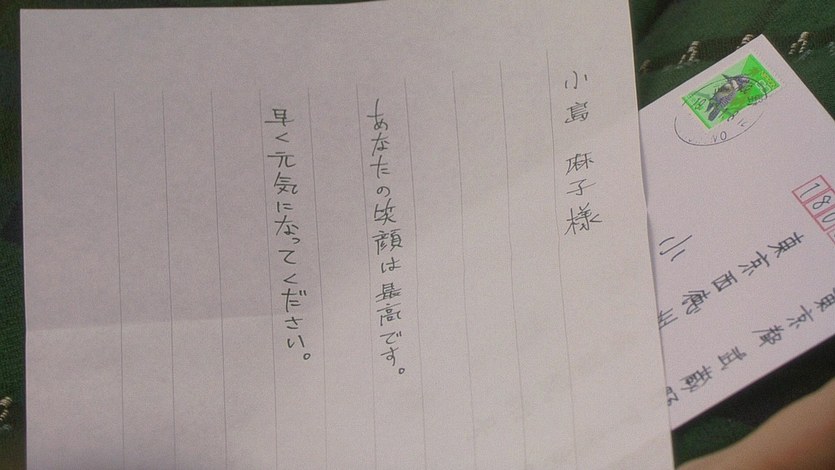 小島 麻子様
あなたの笑顔は最高です。
早く元気になってください。
18
東京
東京西
小